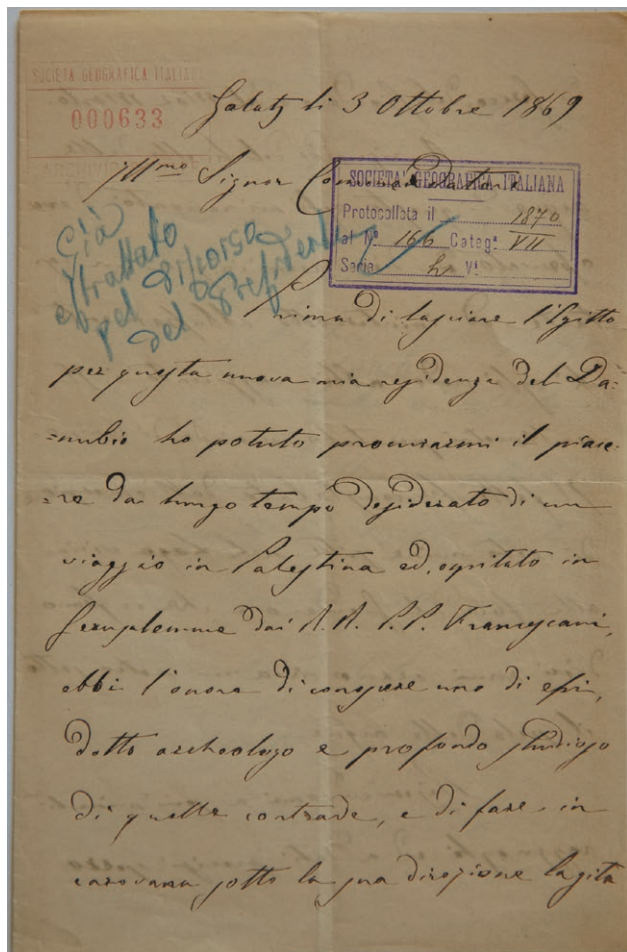 SOCIETÀ GEOGRAFICA ITALIANA
000633
Galatz li 3 Ottobre 1869
Illmo Signor Commendatore
SOCIETA' GEOGRAFICA ITALIANA
Protocollata il 1870
al N° 166 Categ. VII
Serie 2 V!
Già
estrattato
pel discorso
del Presidente
Prima di lasciare l'Egitto
per questa nuova mia residenza del Da=
=nubio ho potuto procurarmi il piace=
=re da lungo tempo desiderato di un
viaggio in Palestina ed, ospitato in
Gerusalemme dai R. R. P. P. Francescani,
ebbi l'onore di conoscere uno di essi,
dotto archeologo e profondo studioso
di quelle contrade, e di fare in
carovana sotto la sua direzione la gita